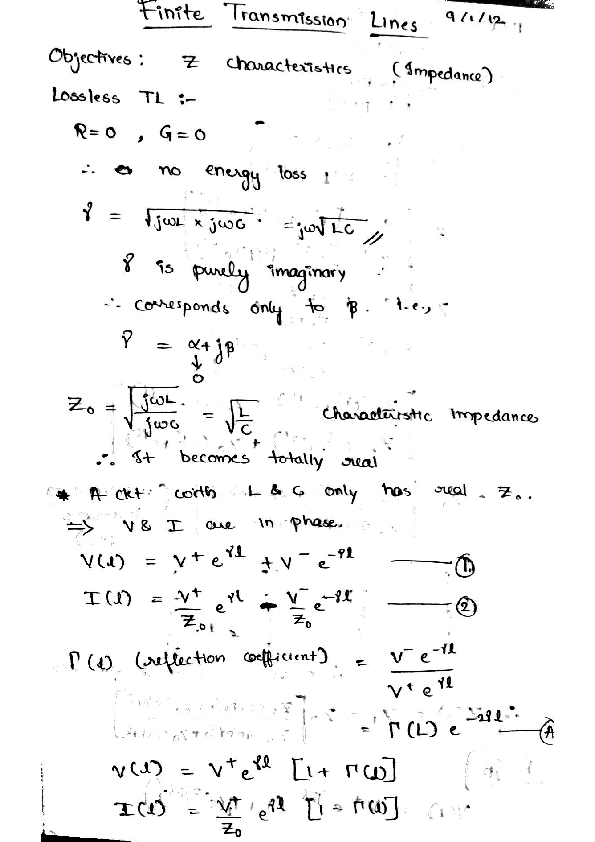 Finite Transmission Lines 9/1/12
Objectives: Z characteristics (Impedance)
Lossless TL :-
R=0 , G=0
∴ no energy loss
γ = √(jωL × jωC) = jω√LC //
γ is purely imaginary
∴ corresponds only to β. i.e.,
γ = α + jβ
↓
0
Z₀ = √(jωL / jωC) = √(L/C) Characteristic Impedance
∴ It becomes totally real
* A ckt with L & C only has real Z₀.
⇒ V & I are in phase.
V(l) = V⁺ e^γl + V⁻ e^-γl —— ①
I(l) = V⁺/Z₀ e^γl - V⁻/Z₀ e^-γl —— ②
Γ(l) (reflection coefficient) = V⁻ e^-γl / V⁺ e^γl
= Γ(L) e^-2γl —— Ⓐ
V(l) = V⁺ e^γl [1 + Γ(l)]
I(l) = V⁺/Z₀ e^γl [1 - Γ(l)]